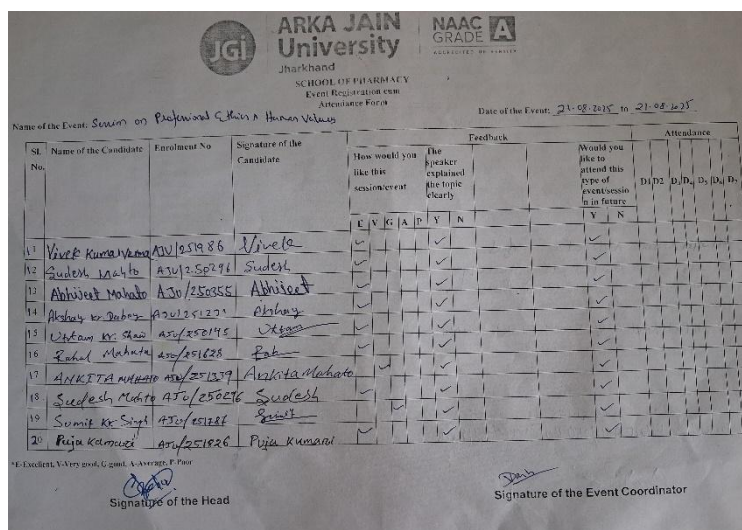 JGi
ARKA JAIN
University
Jharkhand
NAAC
GRADE A
ACCREDITED UNIVERSITY
SCHOOL OF PHARMACY
Event Registration cum
Attendance Form
Name of the Event: Session on Professional Ethics & Human Values
Date of the Event: 21-08-2025 to 21-08-2025
Sl. No. Name of the Candidate Enrolment No Signature of the Candidate Feedback Attendance
How would you like this session/event The speaker explained the topic clearly Would you like to attend this type of event/session in future D1 D2 D3 D4 D5 D6 D7
E V G A P Y N Y N
11 Vivek Kumar Verma AJU/251986 Vivek
12 Sudesh Mahto AJU/250296 Sudesh
13 Abhijeet Mahato AJU/250355 Abhijeet
14 Akshay kr. Dubey Akshay
15 Uttam kr. Shaw AJU/250145 Uttam
16 Rahul Mahata AJU/251628 Rah
17 ANKITA MAHATO AJU/251339 Ankita Mahato
18 Sudesh Mahto AJU/250296 Sudesh
19 Sumit Kr Singh AJU/251787 Sumit
20 Puja Kumari AJU/251826 Puja Kumari
*E-Excellent, V-Very good, G-good, A-Average, P-Poor
Signature of the Head
Signature of the Event Coordinator